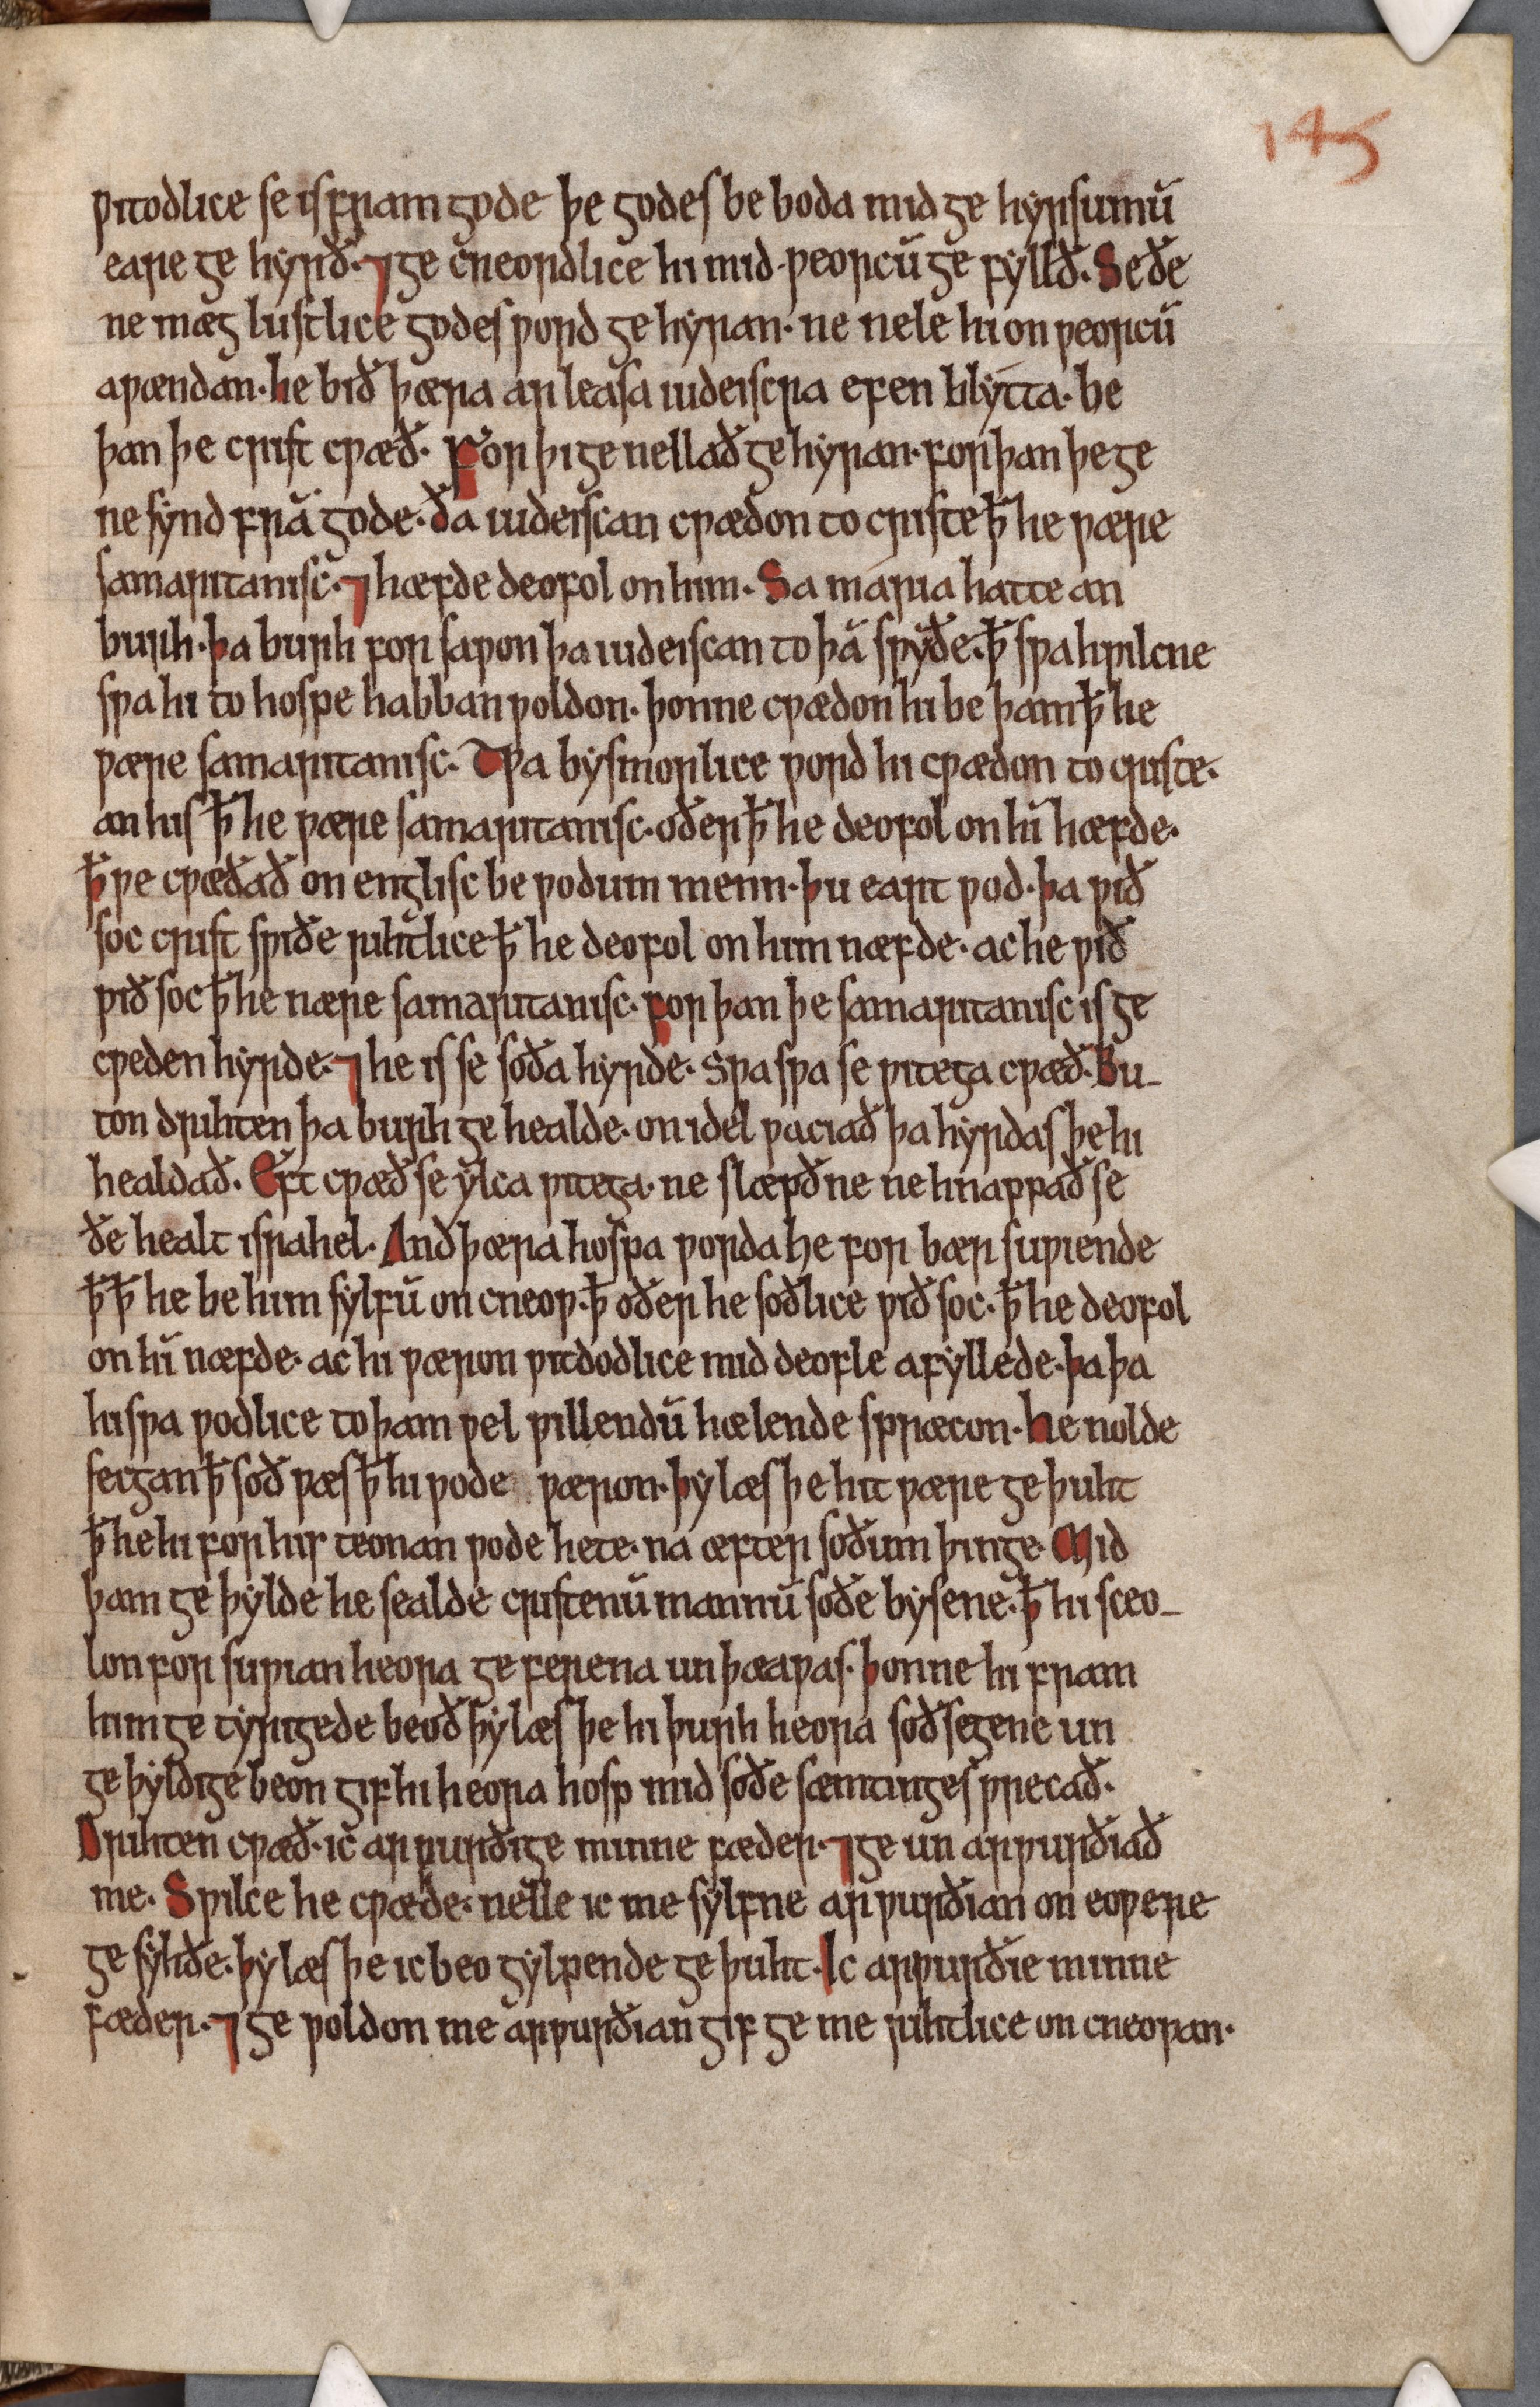 145
ƿitodlice se is fram gode þe godes be boda mid ge hyrsumū
eare ge hyrð. ⁊ ge cneordlice hi mid ƿeorcū ge fyllð. Se ðe
ne mæg lustlice godes ƿord ge hyran. ne nele hi on ƿeorcū
aƿændan. he bið þæra arleasa iudeiscra efen hlytta. be
þan þe crist cƿæð. For þi ge nellað ge hyran. for þan þe ge
ne synd frā gode. ða iudeiscan cƿædon to criste ꝥ he ƿære
samaritanisc. ⁊ hæfde deofol on him. Sa maria hatte an
burh. þa burh for saƿon þa iudeiscan to þā sƿyðe. ꝥ sƿa hƿilcne
sƿa hi to hospe habban ƿoldon. þonne cƿædon hi be þam ꝥ he
ƿære samaritanisc. Tƿa bysmorlice ƿord hi cƿædon to criste.
an his ꝥ he ƿære samaritanisc. oðer ꝥ he deofol on hī hæfde.
ꝥ ƿe cƿæðað on englisc be ƿodum menn. þu eart ƿod. þa ƿið
soc crist sƿiðe rihtlice ꝥ he deofol on him næfde. ac he ƿið
ƿið soc ꝥ he nære samaritanisc. for þan þe samaritanisc is ge
cƿeden hyrde. ⁊ he is se soða hyrde. Sƿa sƿa se ƿitega cƿæð. Bu-
ton drihten þa burh ge healde. on idel ƿaciað þa hyrdas þe hi
healdað. Eft cƿæð se ylca ƿitega. ne slæpð ne ne hnappað se
ðe healt israhel. And þæra hospa ƿorda he for bær suƿiende
ꝥ ꝥ he be him sylfū on cneoƿ. ꝥ oðer he soðlice ƿið soc. ꝥ he deofol
on hī næfde. ac hi ƿæron ƿitdodlice mid deofle afyllede. þa þa
hi sƿa ƿodlice to þam ƿel ƿillendū hælende spræcon. he nolde
secgan ꝥ soð ƿæs ꝥ hi ƿode ƿæron. þy læs þe hit ƿære ge þuht
ꝥ he hi for hir teonan ƿode hete. na æfter soðum þinge. Mid
þam ge þylde he sealde cristenū mannū soðe bysene. ꝥ hi sceo-
lon for suƿian heora ge ferena un þæaƿas. þonne hi fram
him ge tyrigede beoð þy læs þe hi þurh heora soð segene un
ge þyldige beon gif hi heora hosp mid soðe sæmtinges ƿrecað.
Drihten cƿæð. ic arƿurðige minne fæder. ⁊ ge un arƿurðiað
me. Sƿilce he cƿæde. nelle ic me sylfne arƿurðian on eoƿere
ge syhðe. þy læs þe ic beo gylpende ge þuht. Ic arƿurðie minne
fæder. ⁊ ge ƿoldon me arƿurðian gif ge me rihtlice on cneoƿan.